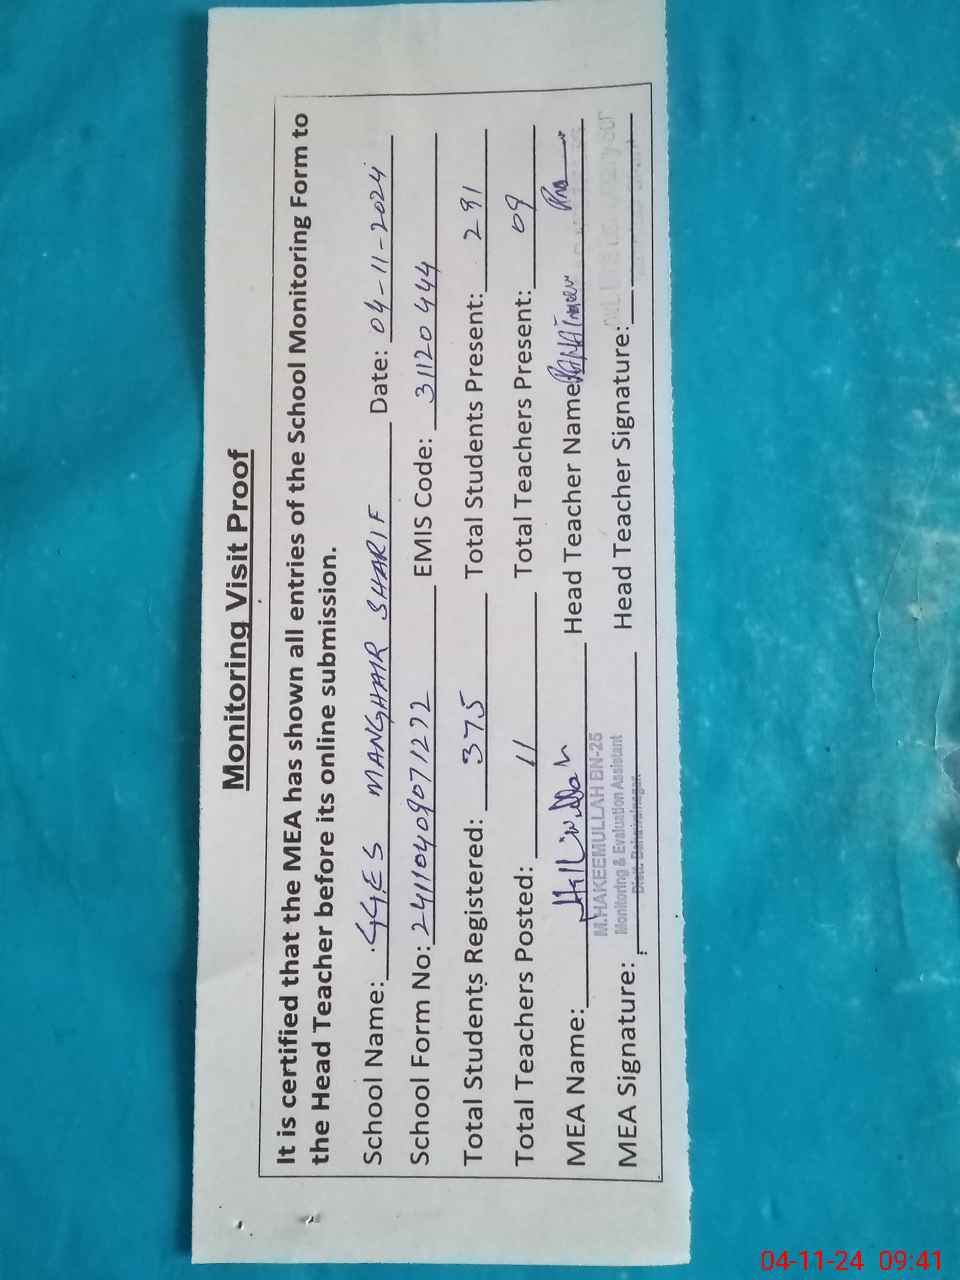 Monitoring Visit Proof
It is certified that the MEA has shown all entries of the School Monitoring Form to
the Head Teacher before its online submission.
School Name: GGES MANGHAIR SHARIF Date: 04-11-2024
School Form No: 24110409071272 EMIS Code: 31120444
Total Students Registered: 375 Total Students Present: 291
Total Teachers Posted: 11 Total Teachers Present: 09
MEA Name: Head Teacher Name: RANA
M.HAKEEMULLAH BN-25
Monitoring & Evaluation Assistant
Distt. Bahawalnagar.
MEA Signature: Head Teacher Signature:
04-11-24 09:41